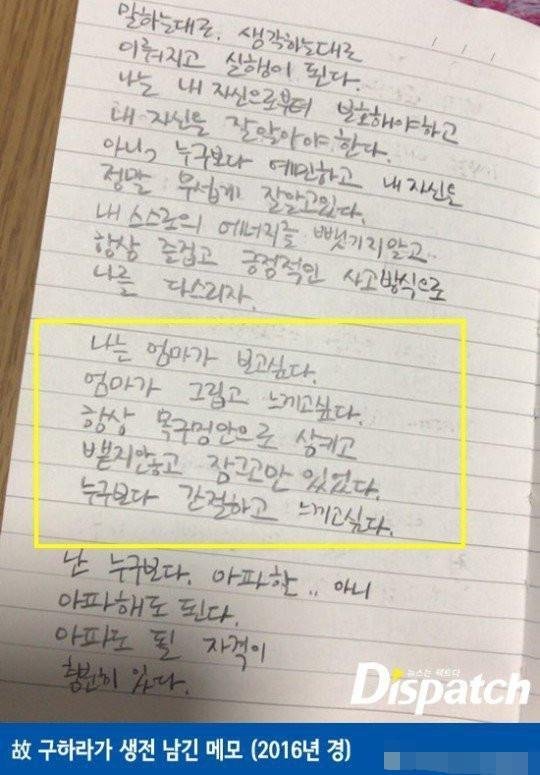 말하는대로. 생각하는대로
이뤄지고 실행이 된다.
나는 내 자신으로부터 보호해야하고
내 자신을 잘알아야한다.
아니, 누구보다 예민하고 내 자신을
정말 무섭게 잘알고있다.
내 스스로의 에너지를 뺏기지말고
항상 즐겁고 긍정적인 사고방식으로
나를 다스리자.
나는 엄마가 보고싶다.
엄마가 그립고 느끼고싶다.
항상 목구멍안으로 삼키고
뱉지안흥고 잠그고만 있었다.
누구보다 간절하고 느끼고싶다.
난 누구보다. 아파한.. 아니
아파해도 된다.
아파도 될 자격이
충분히 있다.
뉴스는 팩트다
Dispatch
故 구하라가 생전 남긴 메모 (2016년 경)